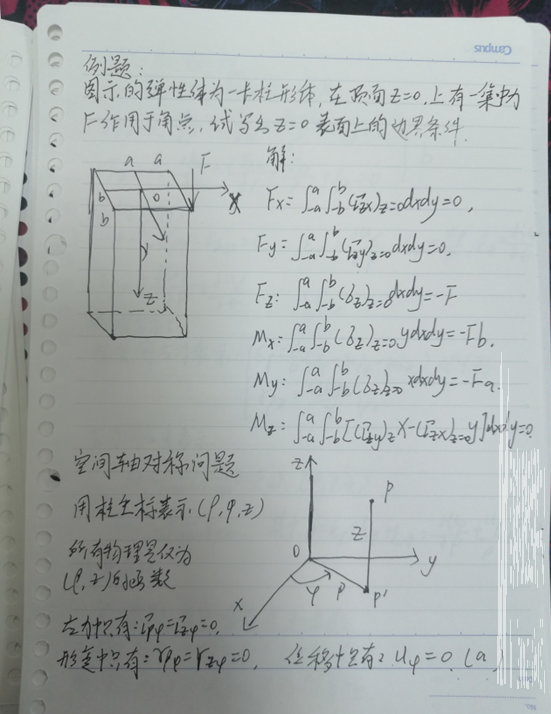 Campus
例题:
图示的弹性体为一长柱形体,在顶面Z=0,上有一集中力
F作用于角点,试写出Z=0表面上的边界条件.
解:
a a F
b O X
b
y
Z
Fx: ∫₋ₐᵃ∫₋bᵇ(τzx)z=0dxdy=0,
Fy: ∫₋ₐᵃ∫₋bᵇ(τzy)z=0dxdy=0.
Fz: ∫₋ₐᵃ∫₋bᵇ(δz)z=0dxdy=-F
Mx: ∫₋ₐᵃ∫₋bᵇ(δz)z=0ydxdy=-Fb.
My: ∫₋ₐᵃ∫₋bᵇ(δz)z=0xdxdy=-Fa.
Mz: ∫₋ₐᵃ∫₋bᵇ[(τzy)zX-(τzx)z=0y]dxdy=0
空间轴对称问题
用柱坐标表示.(ρ,φ,z)
所有物理量仅为
(ρ,z)的函数
z
P
Z
O y
φ ρ P'
x
应力中只有:τρφ=τzφ=0.
形变中只有:γρφ=γzφ=0, 位移中只有:uφ=0.(a
No.